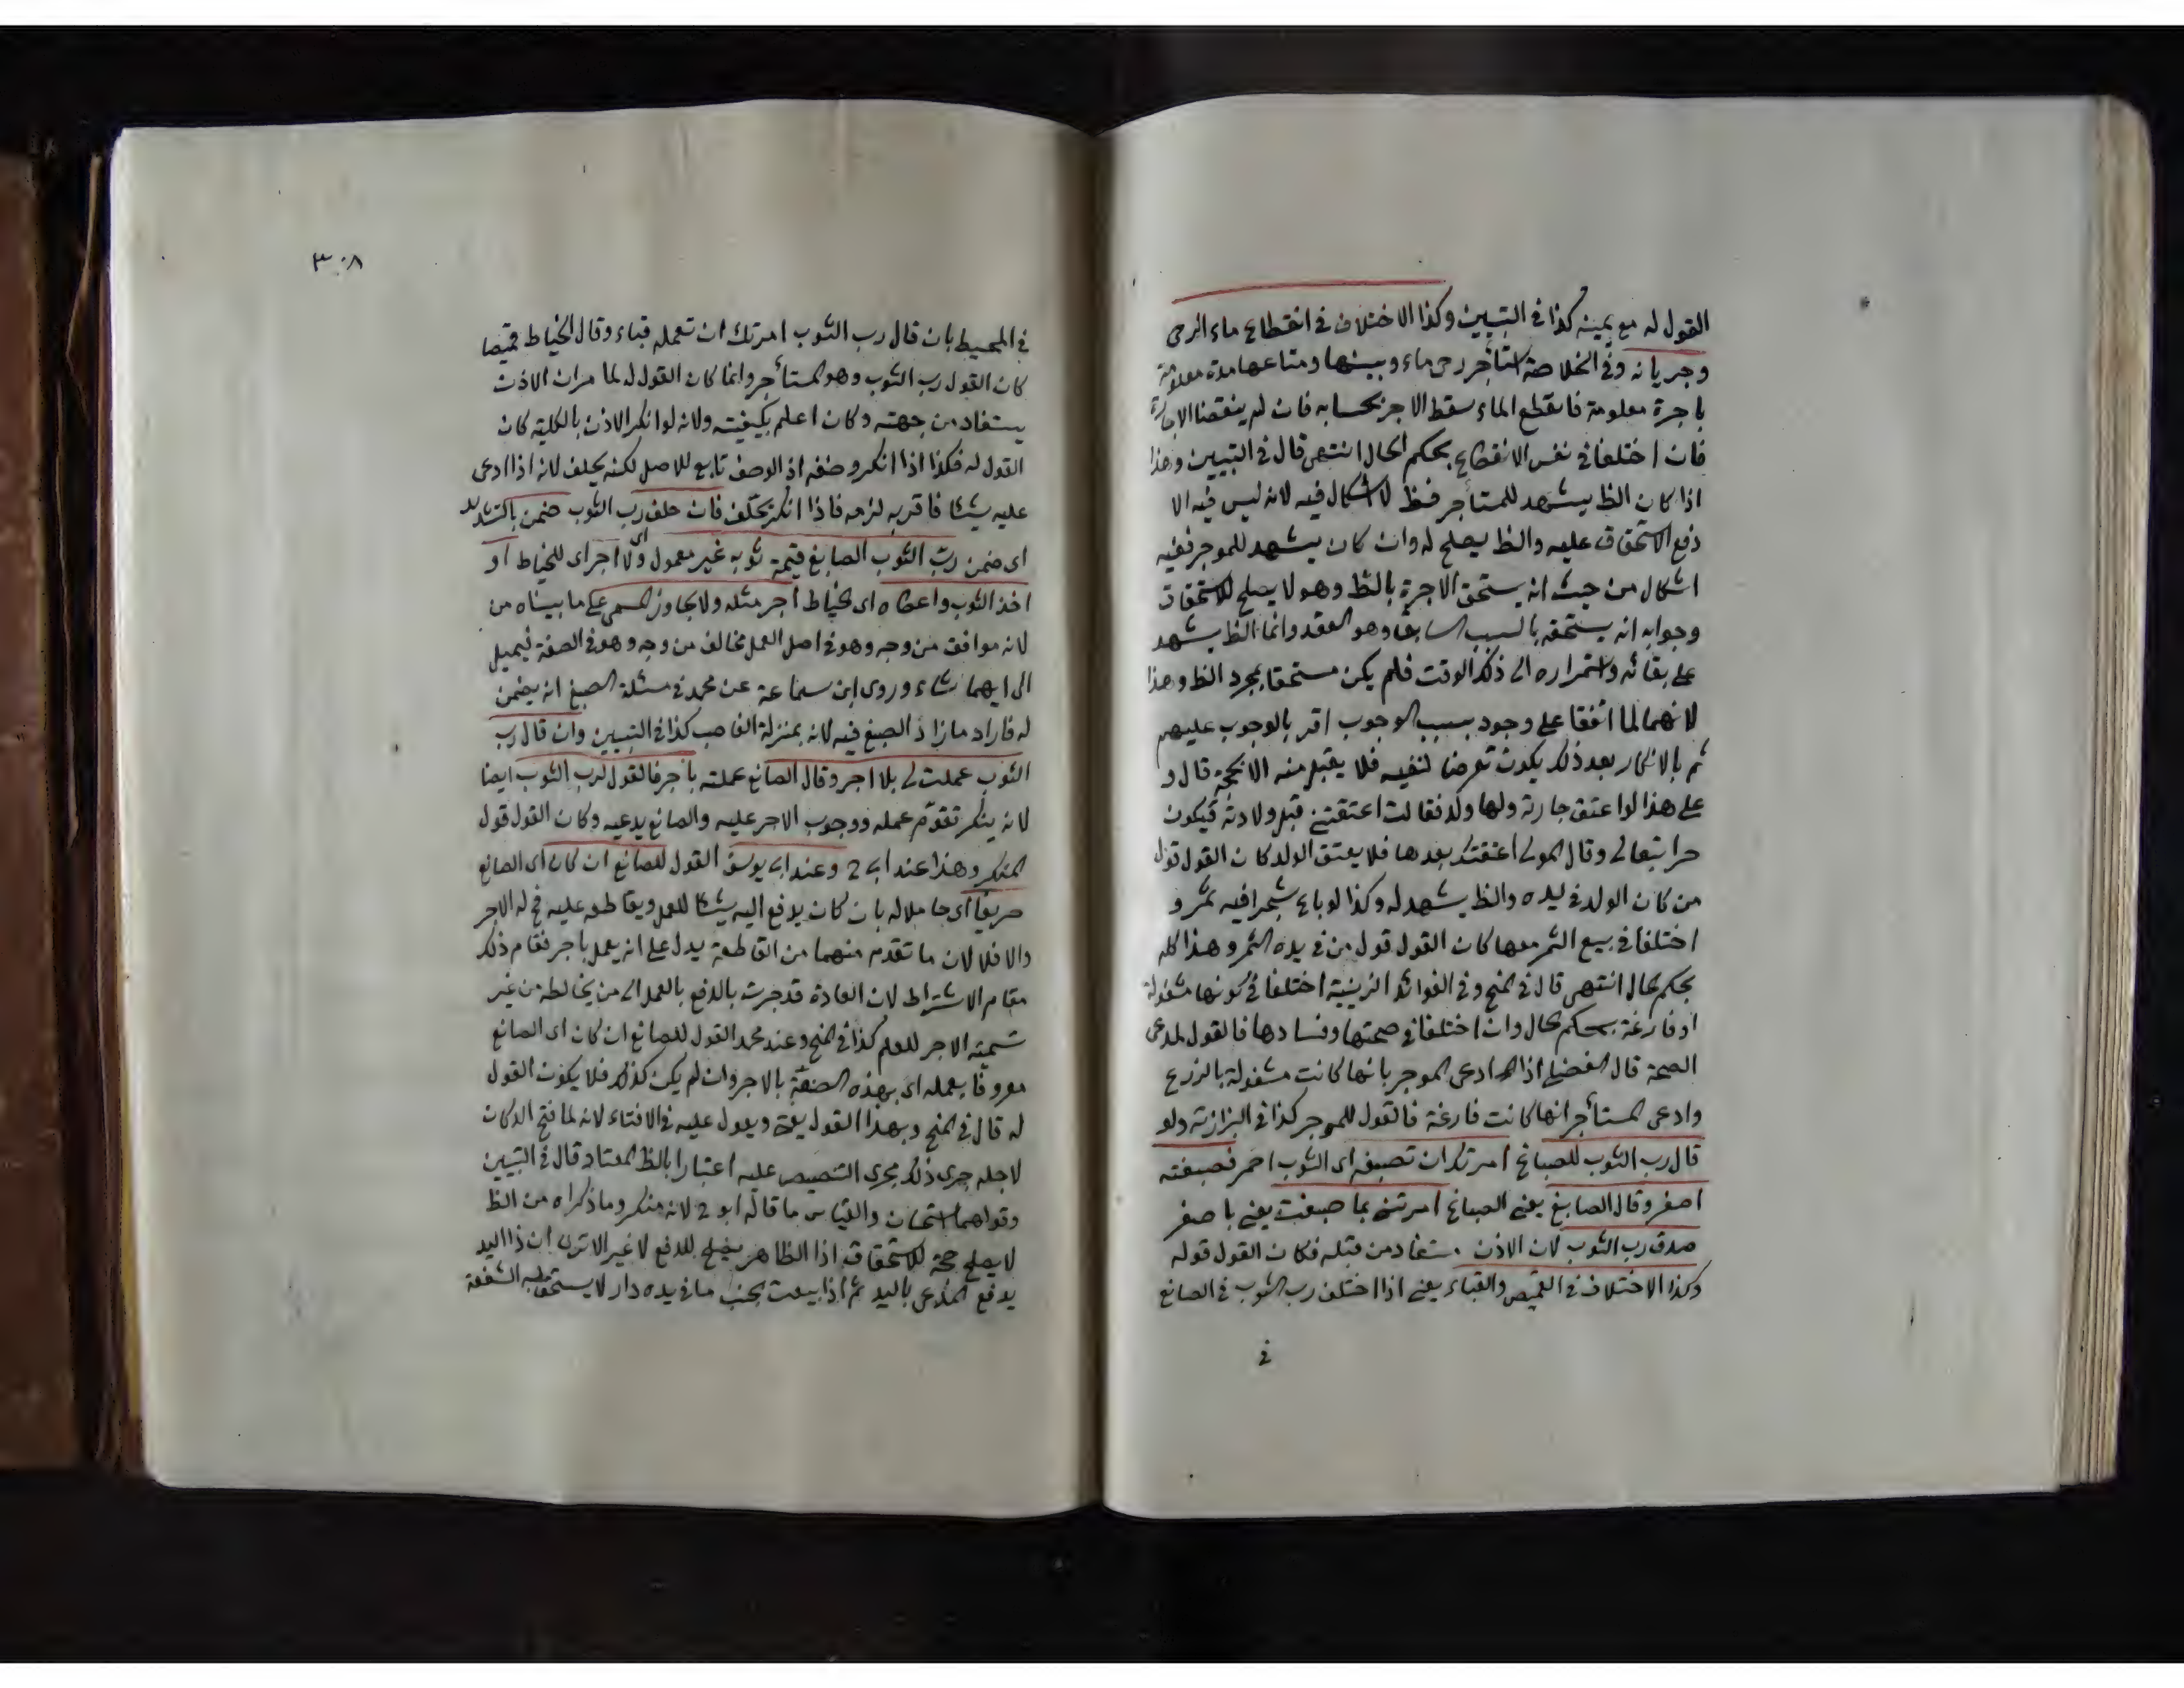 القول له مع يمينه كذا في التبيين وكذا الاختلاف في انقطاع ماء الرحى
وجريانه وفي الخلاصة استأجر رحى ماء وبيتها ومتاعها مدة معلومة
باجرة معلومة فانقطع الماء سقط الاجر بحسابه فان لم ينقضا الاجارة
فان اختلفا في نفس الانقطاع بحكم الحال انتهى قال في التبيين وهذا
اذا كان الظ يشهد للمستأجر فظ لا اشكال فيه لانه ليس فيه الا
دفع الاستحقاق عليه والظ يصلح له وان كان يشهد للموجر ففيه
اشكال من حيث انه يستحق الاجرة بالظ وهو لا يصلح للاستحقاق
وجوابه انه يستحقه بالسبب السابق وهو العقد وانما الظ يشهد
على بقائه واستمراره الى ذلك الوقت فلم يكن مستحقا بمجرد الظ وهذا
لانهما لما اتفقا على وجود سبب الوجوب اقر بالوجوب عليهم
ثم بالانكار بعد ذلك يكون تعرضا لنفيه فلا يقبل منه الا بحجة قال و
على هذا لو اعتق جارية ولها ولد فقالت اعتقتني قبل ولادته فيكون
حرا تبعا لي وقال المولى اعتقتك بعدها فلا يعتق الولد كان القول قول
من كان الولد في يده والظ يشهد له وكذا لو باع شجرا فيه ثمر و
اختلفا في بيع الثمر معها كان القول قول من في يده الثمر وهذا كله
بحكم الحال انتهى قال في المنح وفي الفوائد الزينية اختلفا في كونها مشغولة
او فارغة يحكم الحال وان اختلفا في صحتها وفسادها فالقول لمدعي
الصحة قال الفضلي اذا ادعى الموجر بانها كانت مشغولة بالزرع
وادعى المستأجر انها كانت فارغة فالقول للموجر كذا في البزازية ولو
قال رب الثوب للصباغ امرتك ان تصبغه اى الثوب احمر فصبغته
اصفر وقال الصابغ يعني الصباغ امرتني بما صبغت يعني باصفر
صدق رب الثوب لان الاذن مستفاد من قبله فكان القول قوله
وكذا الاختلاف في القميص والقباء يعني اذا اختلف رب الثوب في الصانع
في
٣٠٨
في المحيط بان قال رب الثوب امرتك ان تعمله قباء وقال الخياط قميصا
كان القول رب الثوب وهو المستأجر وانما كان القول له لما مر ان الاذن
يستفاد من جهته وكان اعلم بكيفيته ولانه لو انكر الاذن بالكلية كان
القول له فكذا اذا انكر وصفه اذ الوصف تابع للاصل لكنه يحلف لانه اذا ادعى
عليه شيئا فاقر به لزمه فاذا انكر يحلف فان حلف رب الثوب ضمن بالتشديد
اى ضمن رب الثوب الصابغ قيمة ثوبه غير معمول ولا اجر اى للخياط او
اخذ الثوب واعطاه اى الخياط اجر مثله ولا يجاوز المسمى على ما بيناه من
لانه موافق من وجه وهو في اصل العمل مخالف من وجه وهو في الصفة فيميل
الى ايهما شاء وروى ابن سماعة عن محمد في مسئلة الصبغ انه يضمن
له فاراد ما زاد الصبغ فيه لانه بمنزلة الغاصب كذا في التبيين وان قال رب
الثوب عملت لي بلا اجر وقال الصانع عملته باجر فالقول لرب الثوب ايضا
لانه ينكر تقوّم عمله ووجوب الاجر عليه والصانع يدعيه وكان القول قول
المنكر وهذا عند ابي ح وعند ابي يوسف القول للصانع ان كان اى الصانع
حريفا اى حاملا له بان كان يدفع اليه شيئا للعمل ويقاطعه عليه فح له الاجر
والا فلا لان ما تقدم منهما من القاطعة يدل على انه يعمل باجر فقام ذلك
مقام الاشتراط لان العادة قد جرت بالدفع بالعمل الى من يخالطه من غير
تسمية الاجر للعلم كذا في المنح وعند محمد القول للصانع ان كان اى الصانع
معروفا بعمله اى بهذه الصنعة بالاجر وان لم يكن كذلك فلا يكون القول
له قال في المنح وبهذا القول يفتى ويعول عليه في الافتاء لانه لما فتح الدكان
لاجله جرى ذلك مجرى التنصيص عليه اعتبارا بالظ المعتاد قال في التبيين
وقولهما استحسان والقياس ما قاله ابو ح لانه منكر وما ذكراه من الظ
لا يصلح حجة للاستحقاق اذا الظاهر يصلح للدفع لا غير الا ترى ان ذا اليد
يدفع المدعى باليد ثم اذا بيعت بجنب ما في يده دار لا يستحق به الشفعة